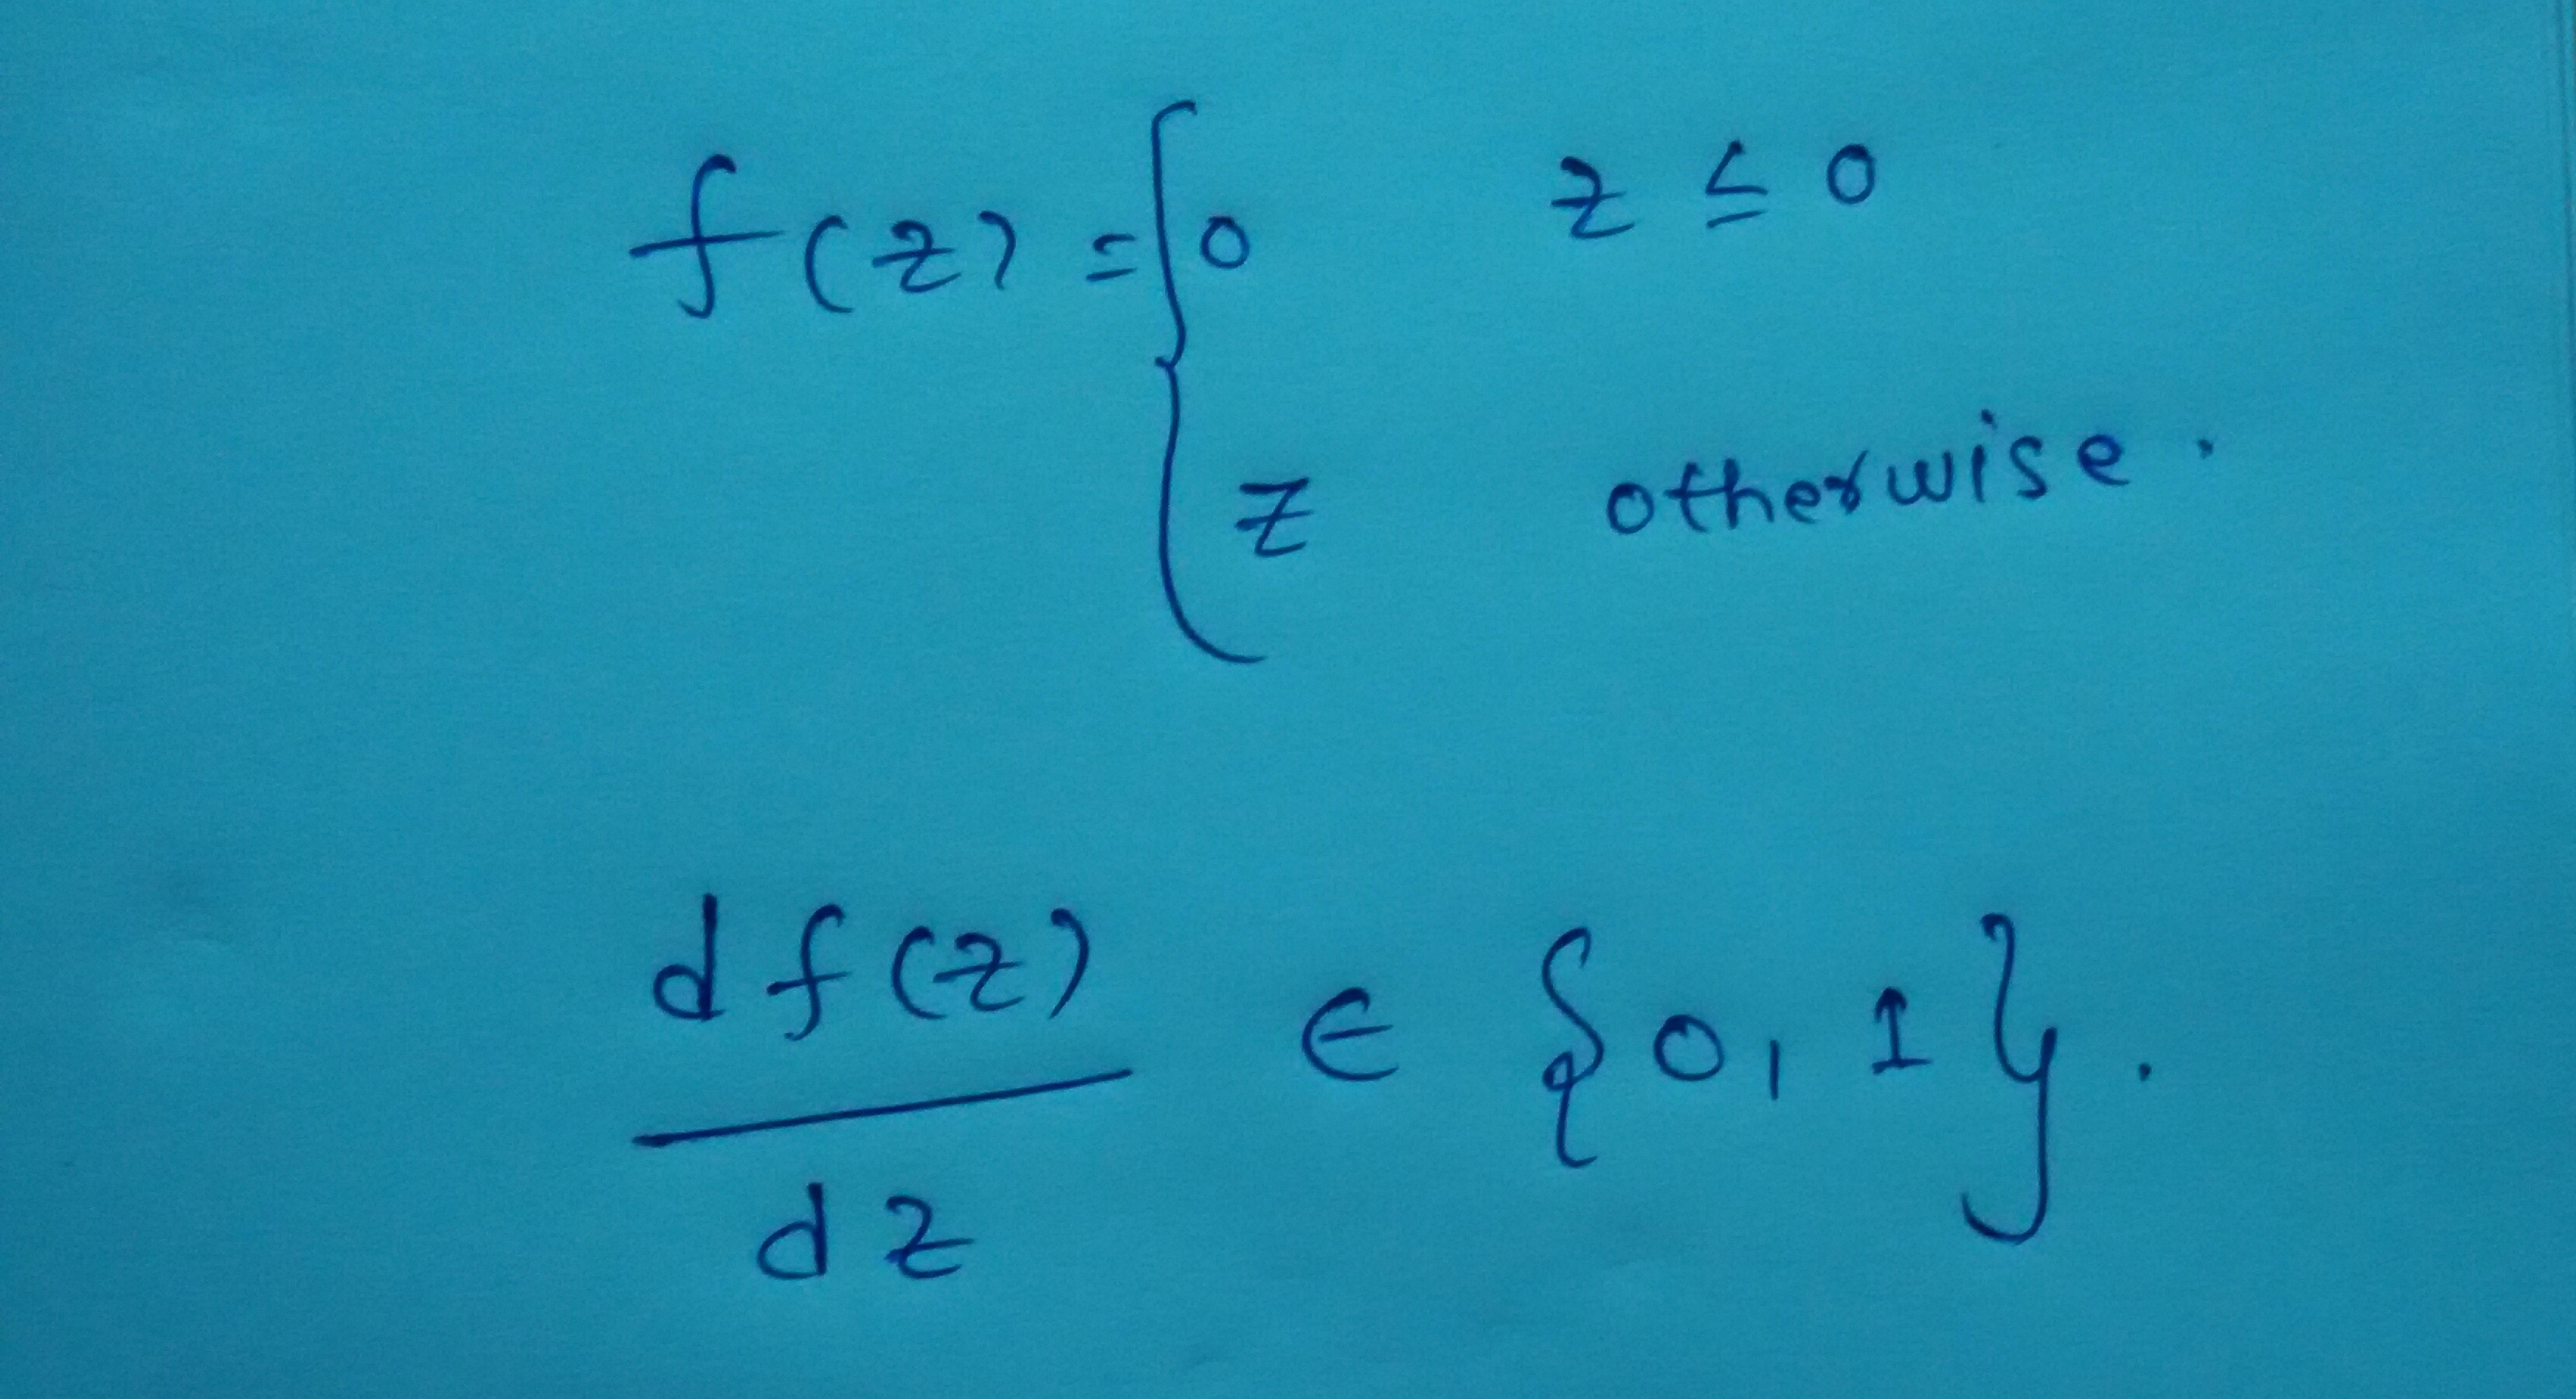 f(z) = { 0    z ≤ 0
z    otherwise.
df(z)/dz ∈ {0, 1}.